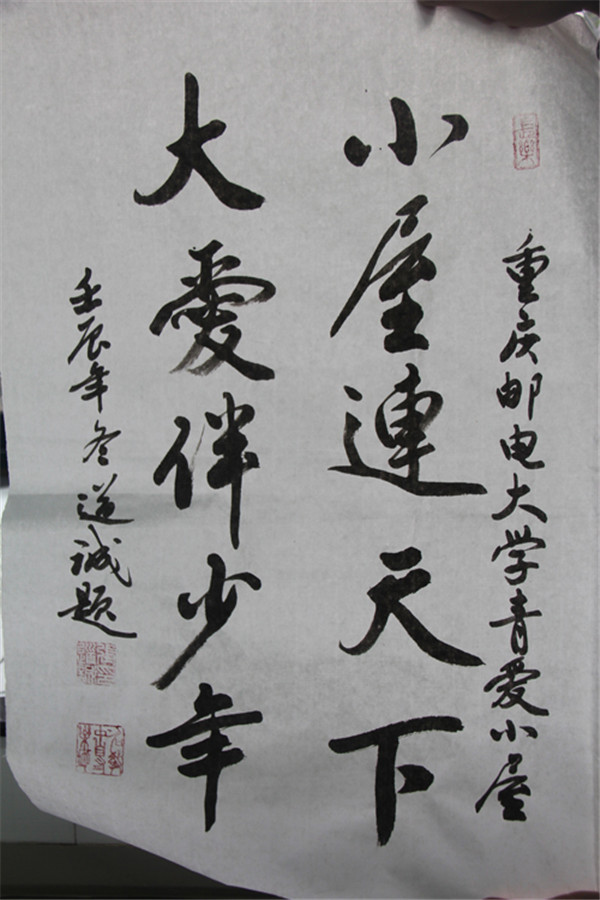 重庆邮电大学青爱小屋
小屋連天下
大愛伴少年
壬辰年冬道誠题